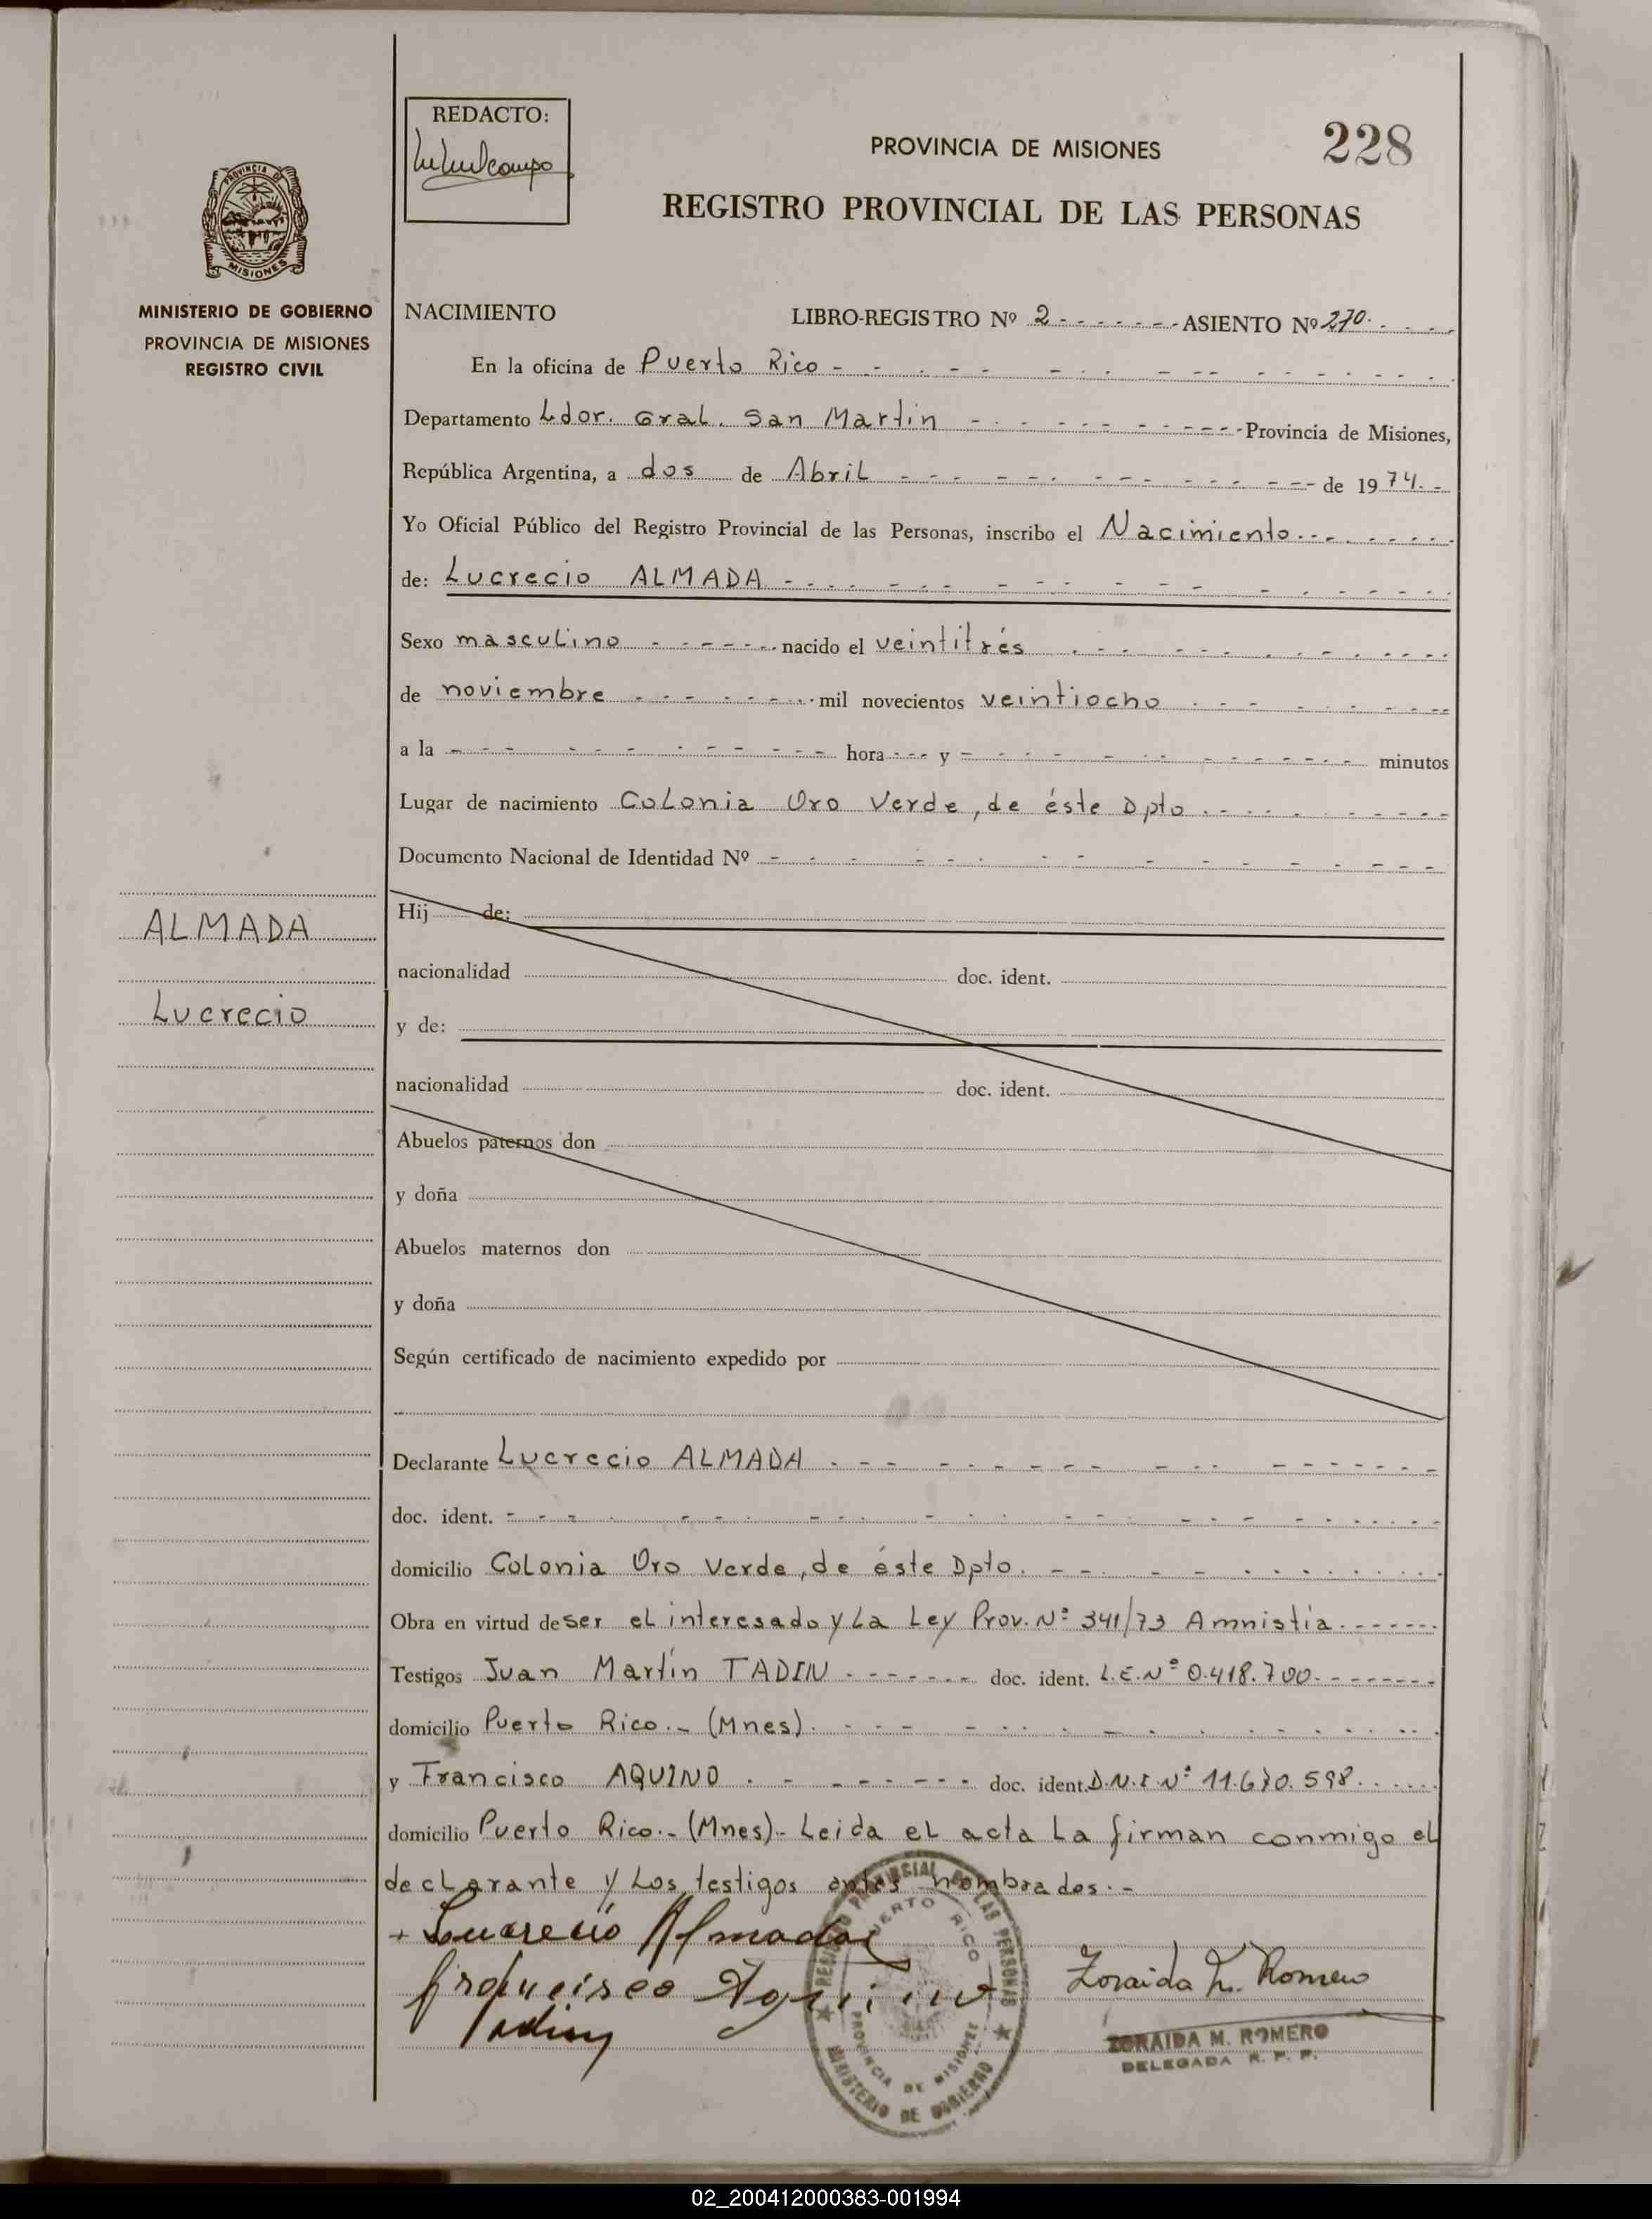 REDACTO:
PROVINCIA DE MISIONES
228
REGISTRO PROVINCIAL DE LAS PERSONAS
PROVINCIA DE
MISIONES
MINISTERIO DE GOBIERNO
PROVINCIA DE MISIONES
REGISTRO CIVIL
NACIMIENTO LIBRO-REGISTRO Nº 2 - ASIENTO Nº 270.
En la oficina de Puerto Rico -
Departamento Ldor. Gral. San Martin - Provincia de Misiones,
República Argentina, a dos de Abril - de 1974.-
Yo Oficial Público del Registro Provincial de las Personas, inscribo el Nacimiento.
de: Lucrecio ALMADA -
Sexo masculino - nacido el veintitrés
de noviembre - mil novecientos veintiocho
a la - hora - y - minutos
Lugar de nacimiento Colonia Oro Verde, de éste Dpto.
Documento Nacional de Identidad Nº -
ALMADA
Lucrecio
Hij de:
nacionalidad doc. ident.
y de:
nacionalidad doc. ident.
Abuelos paternos don
y doña
Abuelos maternos don
y doña
Según certificado de nacimiento expedido por
Declarante Lucrecio ALMADA -
doc. ident. -
domicilio Colonia Oro Verde, de éste Dpto. -
Obra en virtud de ser el interesado y La Ley Prov. Nº 341/73 Amnistia.
Testigos Juan Martín TADIN - doc. ident. L.E. Nº 0.418.700.
domicilio Puerto Rico.- (Mnes).
y Francisco AQUINO - doc. ident. D.N.I Nº 11.670.598.
domicilio Puerto Rico.- (Mnes)- Leida el acta La firman conmigo el
declarante y Los testigos antes nombrados.-
Lucrecio Almada
Francisco Aquino
Tadin
Zoraida M. Romero
REGISTRO PROVINCIAL DE LAS PERSONAS
PUERTO RICO
PROVINCIA DE MISIONES
MINISTERIO DE GOBIERNO
ZORAIDA M. ROMERO
DELEGADA R. P. P.
02_200412000383-001994